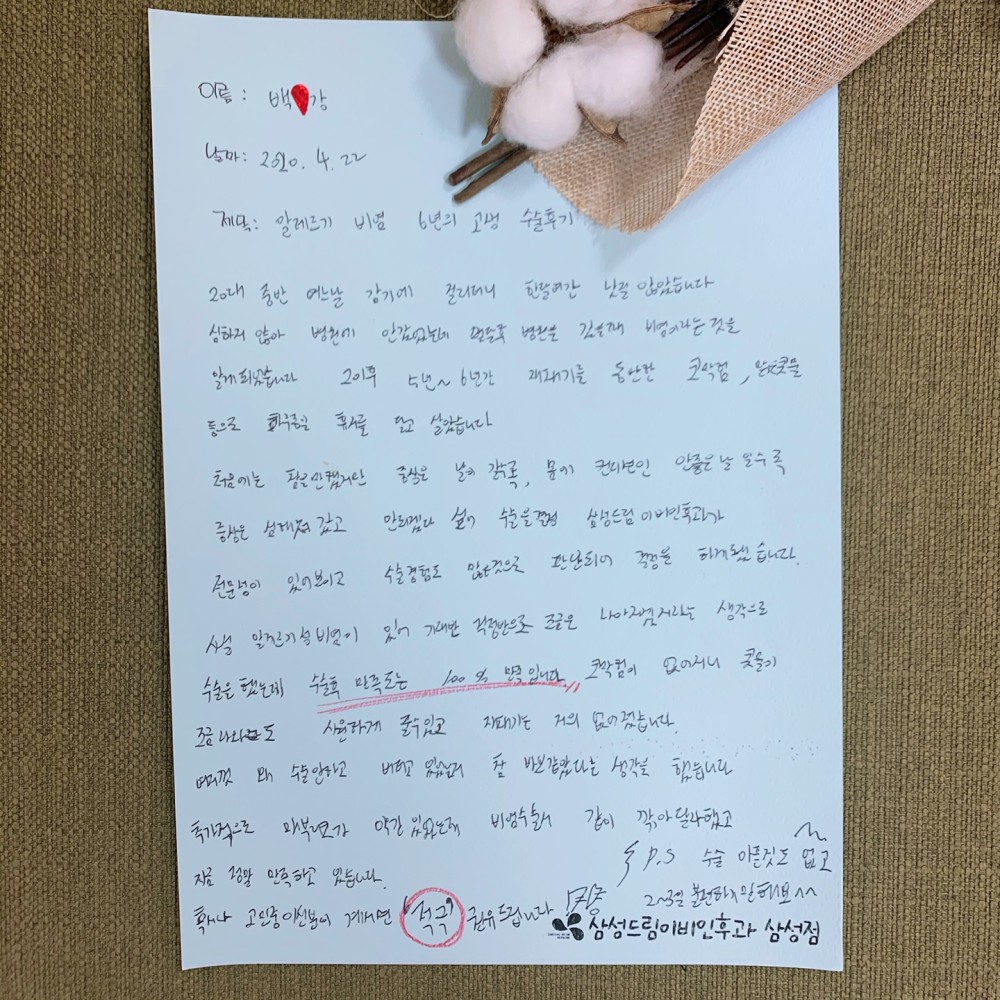 이름: 백 강
날짜: 2020. 4. 22
제목: 알레르기 비염 6년의 고생 수술후기
20대 중반 어느날 감기에 걸리더니 한달여간 낫질 않았습니다
심하지 않아 병원에 안갔었는데 한달후 병원을 갔을때 비염이라는것을
알게되었습니다 그이후 5년~6년간 재채기를 동반한 코막힘, 맑은콧물
등으로 하루종일 휴지를 달고 살았습니다
처음에는 참을만했지만 증상은 날이 갈수록, 몸에 컨디션인 안좋은날 일수록
증상은 심해져 갔고 안되겠다 싶어 수술을결정 삼성드림이비인후과가
전문성이 있어보이고 수술경험도 많은것으로 판단되어 결정을 하게됐습니다.
사실 알레르기성비염이 있어 기대반 걱정반으로 조금은 나아지겠지라는 생각으로
수술은했는데 수술후 만족도는 100% 만족입니다 코막힘이 없어지니 콧물이
조금나와도 시원하게 풀수있고 재채기는 거의 없어졌습니다.
여태껏 왜 수술안하고 버티고 있었는지 참 바보같았다는 생각을 했습니다
추가적으로 매부리코가 약간있었는데 비염수술시 같이 깎아달라했고
지금 정말 만족하고 있습니다.
혹시나 고민중이신분이 계시면 "적극" 권유드립니다
P.S 수술 아픈것도 없고
2~3일 불편하지만 해보^^
삼성드림이비인후과 삼성점